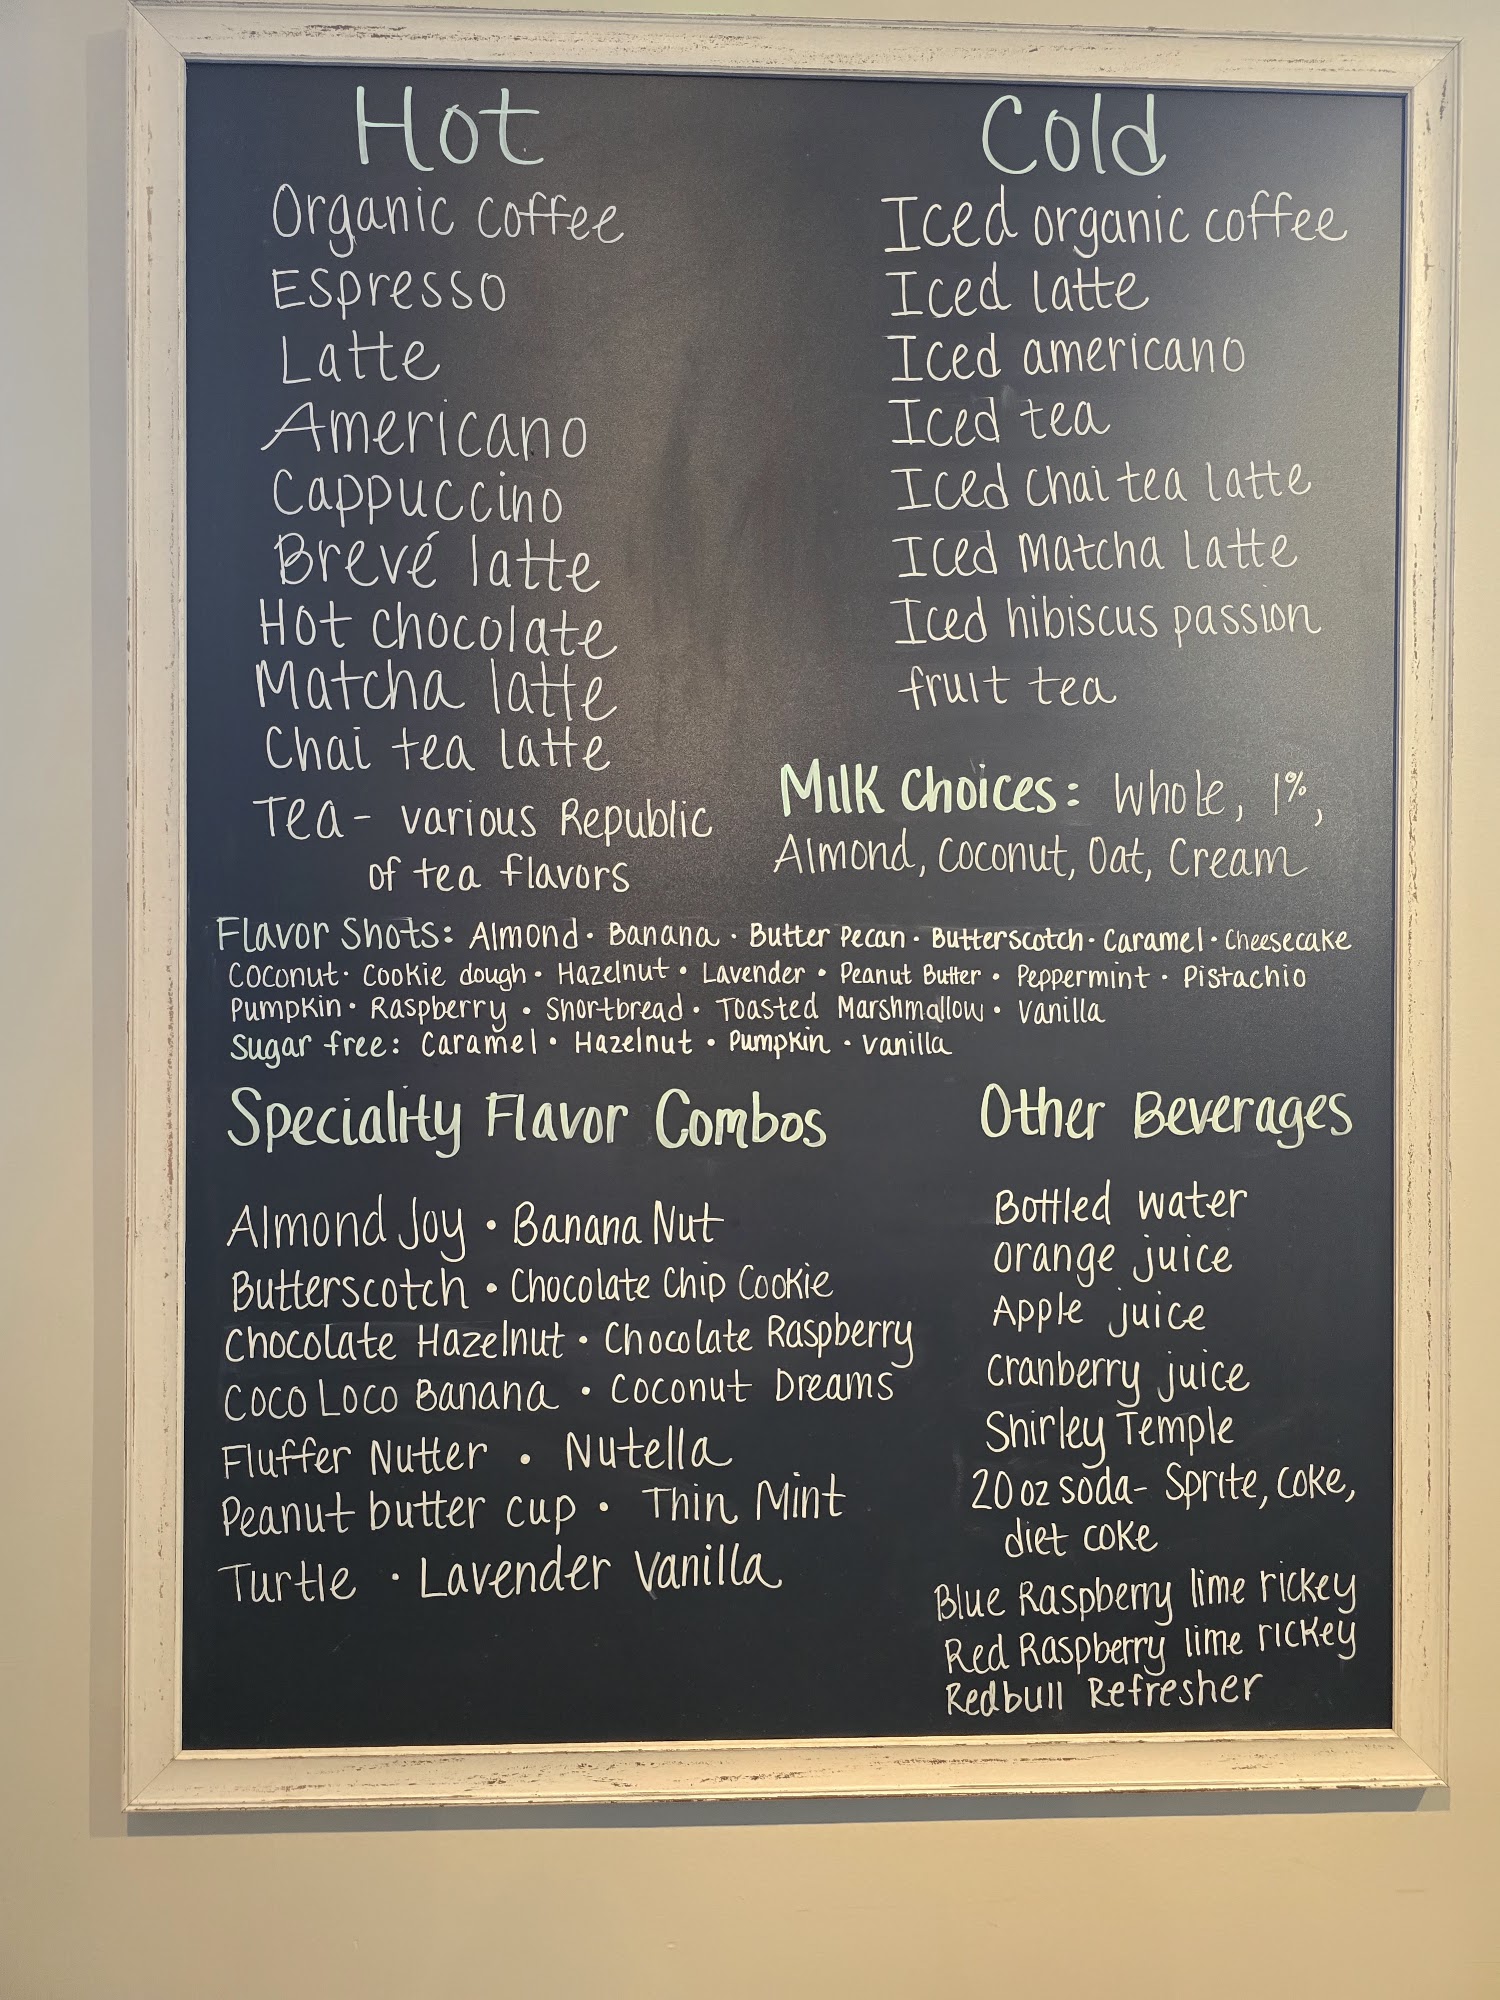 Hot
Organic coffee
Espresso
Latte
Americano
Cappuccino
Brevé latte
Hot chocolate
Matcha latte
Chai tea latte
Tea - various Republic
of tea flavors
Cold
Iced organic coffee
Iced latte
Iced americano
Iced tea
Iced chai tea latte
Iced Matcha Latte
Iced hibiscus passion
fruit tea
Milk Choices: Whole, 1%,
Almond, Coconut, Oat, Cream
Flavor Shots: Almond · Banana · Butter Pecan · Butterscotch · Caramel · Cheesecake
Coconut · Cookie dough · Hazelnut · Lavender · Peanut Butter · Peppermint · Pistachio
Pumpkin · Raspberry · Shortbread · Toasted Marshmallow · Vanilla
Sugar free: Caramel · Hazelnut · Pumpkin · Vanilla
Speciality Flavor Combos
Almond Joy · Banana Nut
Butterscotch · Chocolate Chip Cookie
Chocolate Hazelnut · Chocolate Raspberry
Coco Loco Banana · Coconut Dreams
Fluffer Nutter · Nutella
Peanut butter cup · Thin Mint
Turtle · Lavender Vanilla
Other Beverages
Bottled water
Orange juice
Apple juice
Cranberry juice
Shirley Temple
20 oz soda - Sprite, Coke,
diet coke
Blue Raspberry lime rickey
Red Raspberry lime rickey
Redbull Refresher